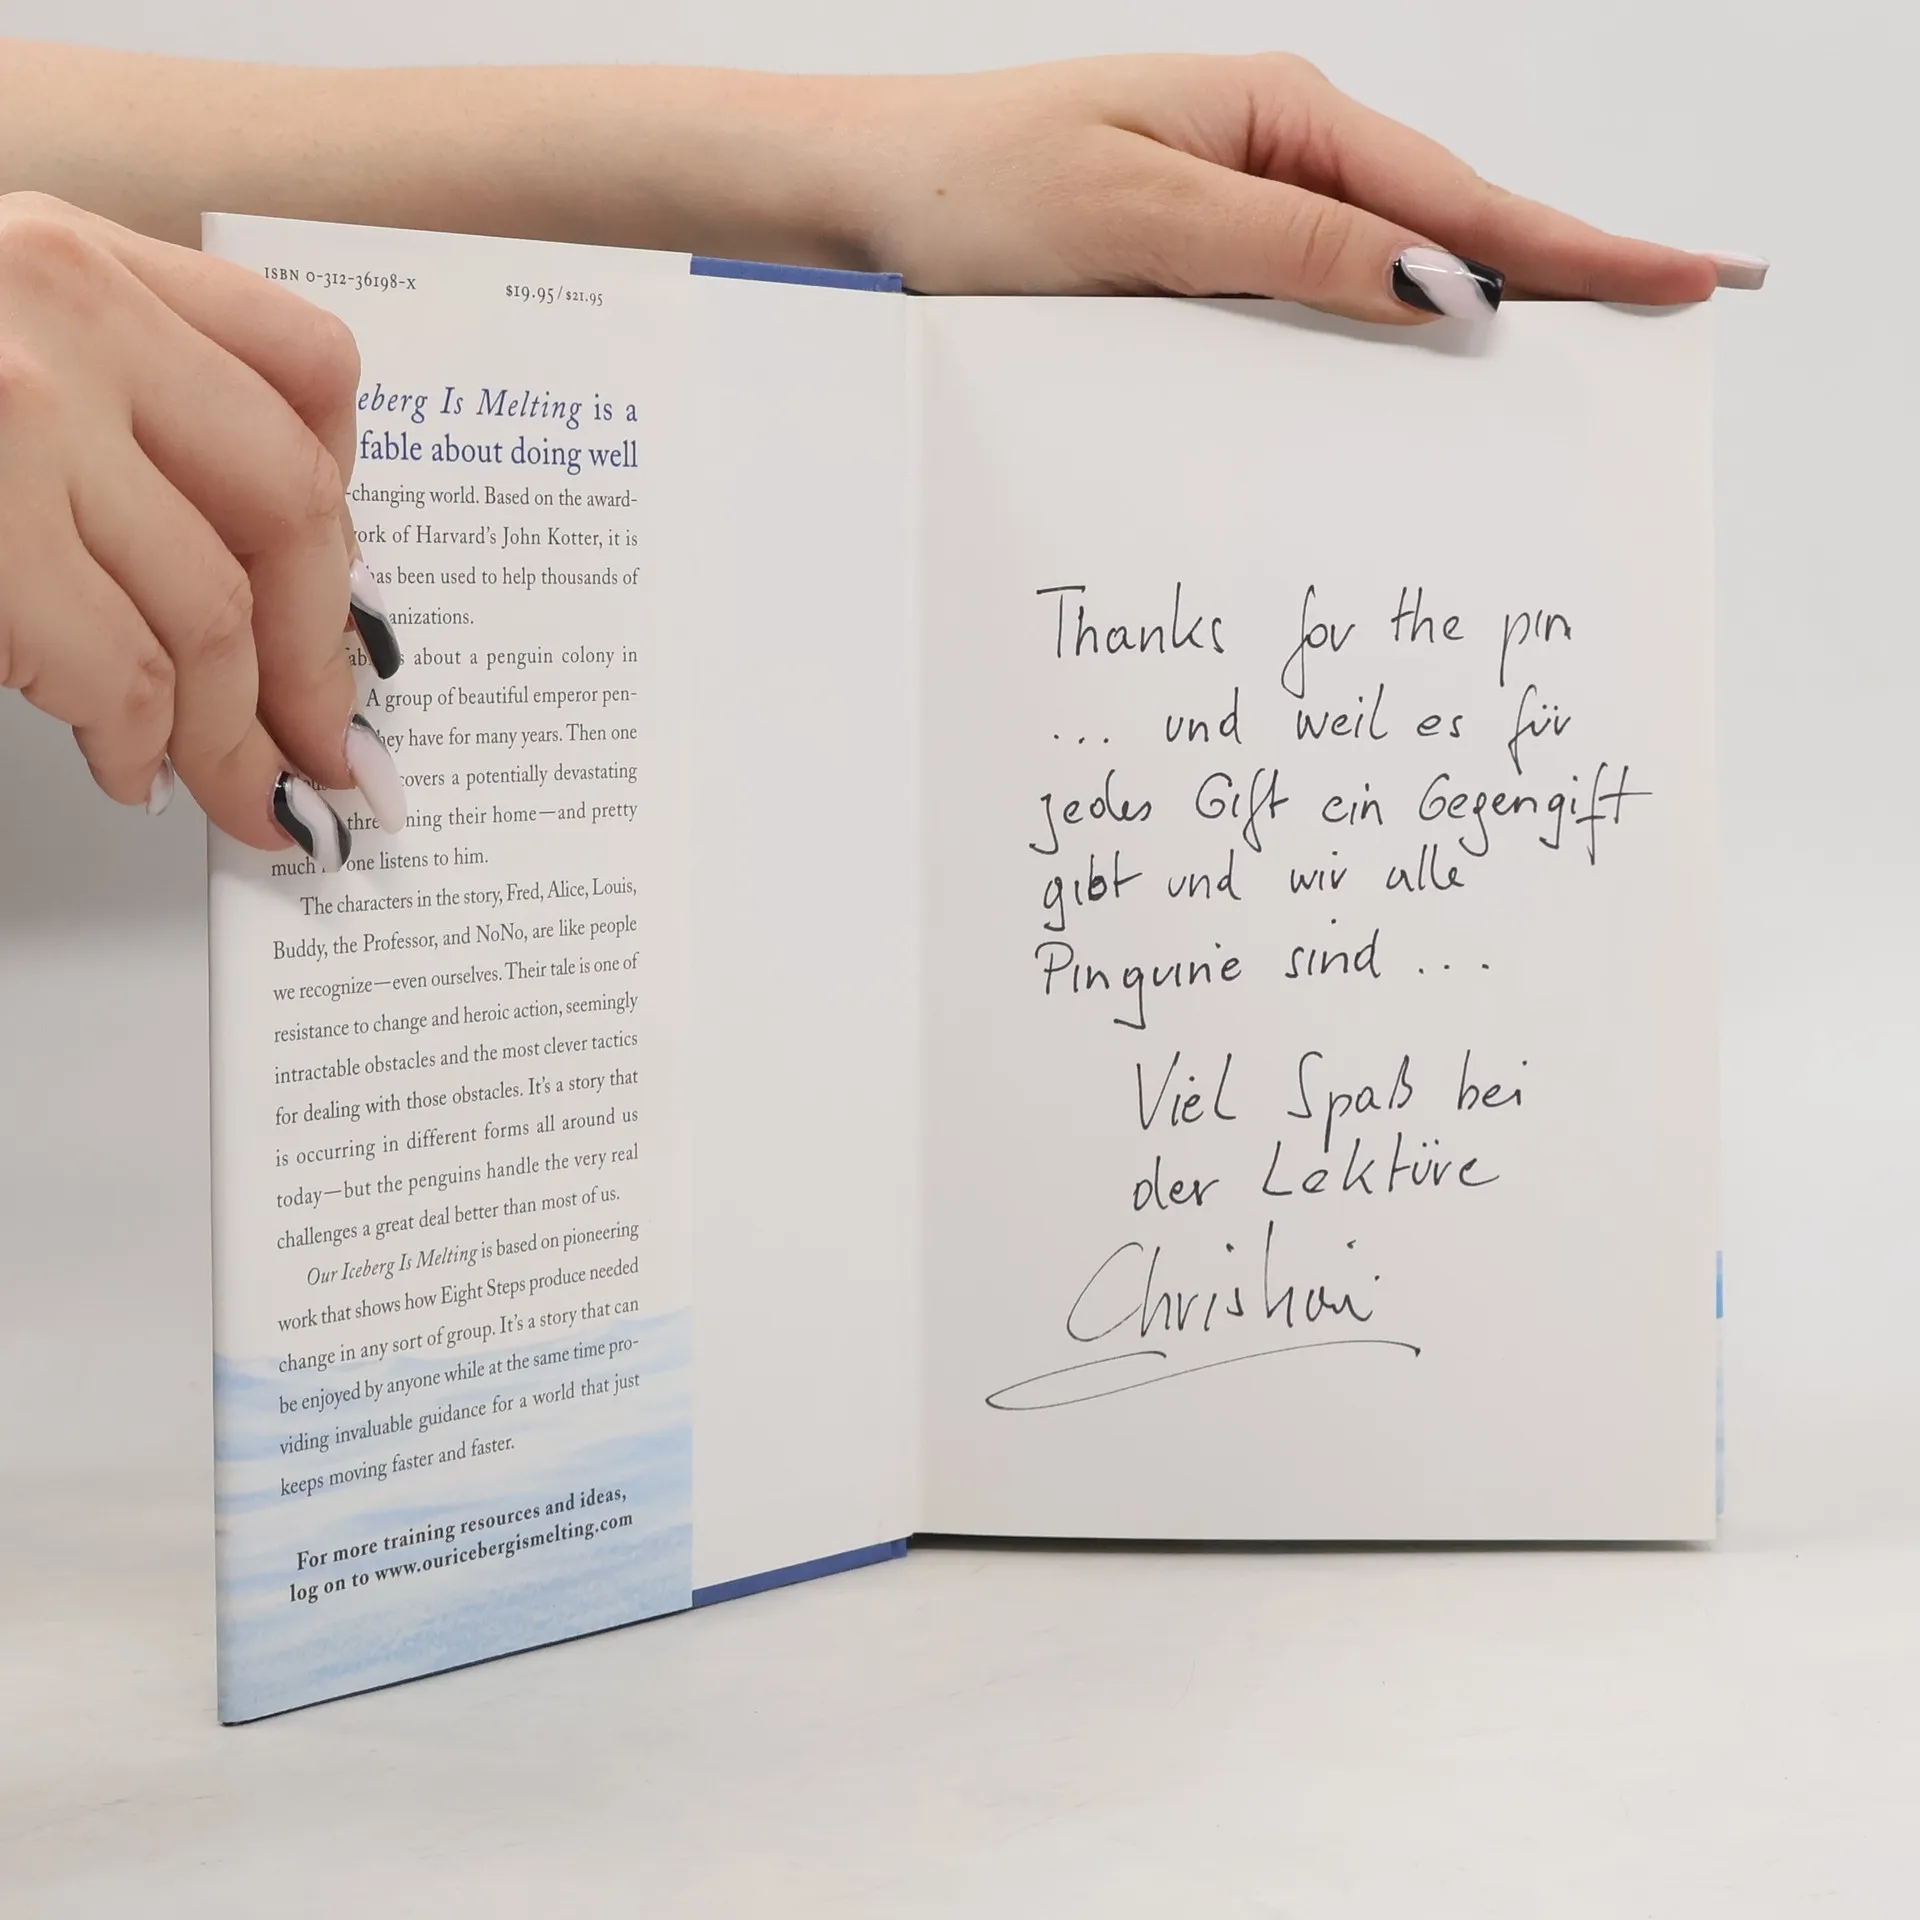 ISBN 0-312-36198-X
$19.95/$21.95
eberg Is Melting is a
fable about doing well
-changing world. Based on the award-
ork of Harvard's John Kotter, it is
has been used to help thousands of
anizations.
about a penguin colony in
A group of beautiful emperor pen-
hey have for many years. Then one
covers a potentially devastating
thre ning their home—and pretty
much one listens to him.
The characters in the story, Fred, Alice, Louis,
Buddy, the Professor, and NoNo, are like people
we recognize—even ourselves. Their tale is one of
resistance to change and heroic action, seemingly
intractable obstacles and the most clever tactics
for dealing with those obstacles. It's a story that
is occurring in different forms all around us
today—but the penguins handle the very real
challenges a great deal better than most of us.
Our Iceberg Is Melting is based on pioneering
work that shows how Eight Steps produce needed
change in any sort of group. It's a story that can
be enjoyed by anyone while at the same time pro-
viding invaluable guidance for a world that just
keeps moving faster and faster.
For more training resources and ideas,
log on to www.ouricebergismelting.com
Thanks for the pin
... und weil es für
jedes Gift ein Gegengift
gibt und wir alle
Pinguine sind ...
Viel Spaß bei
der Lektüre